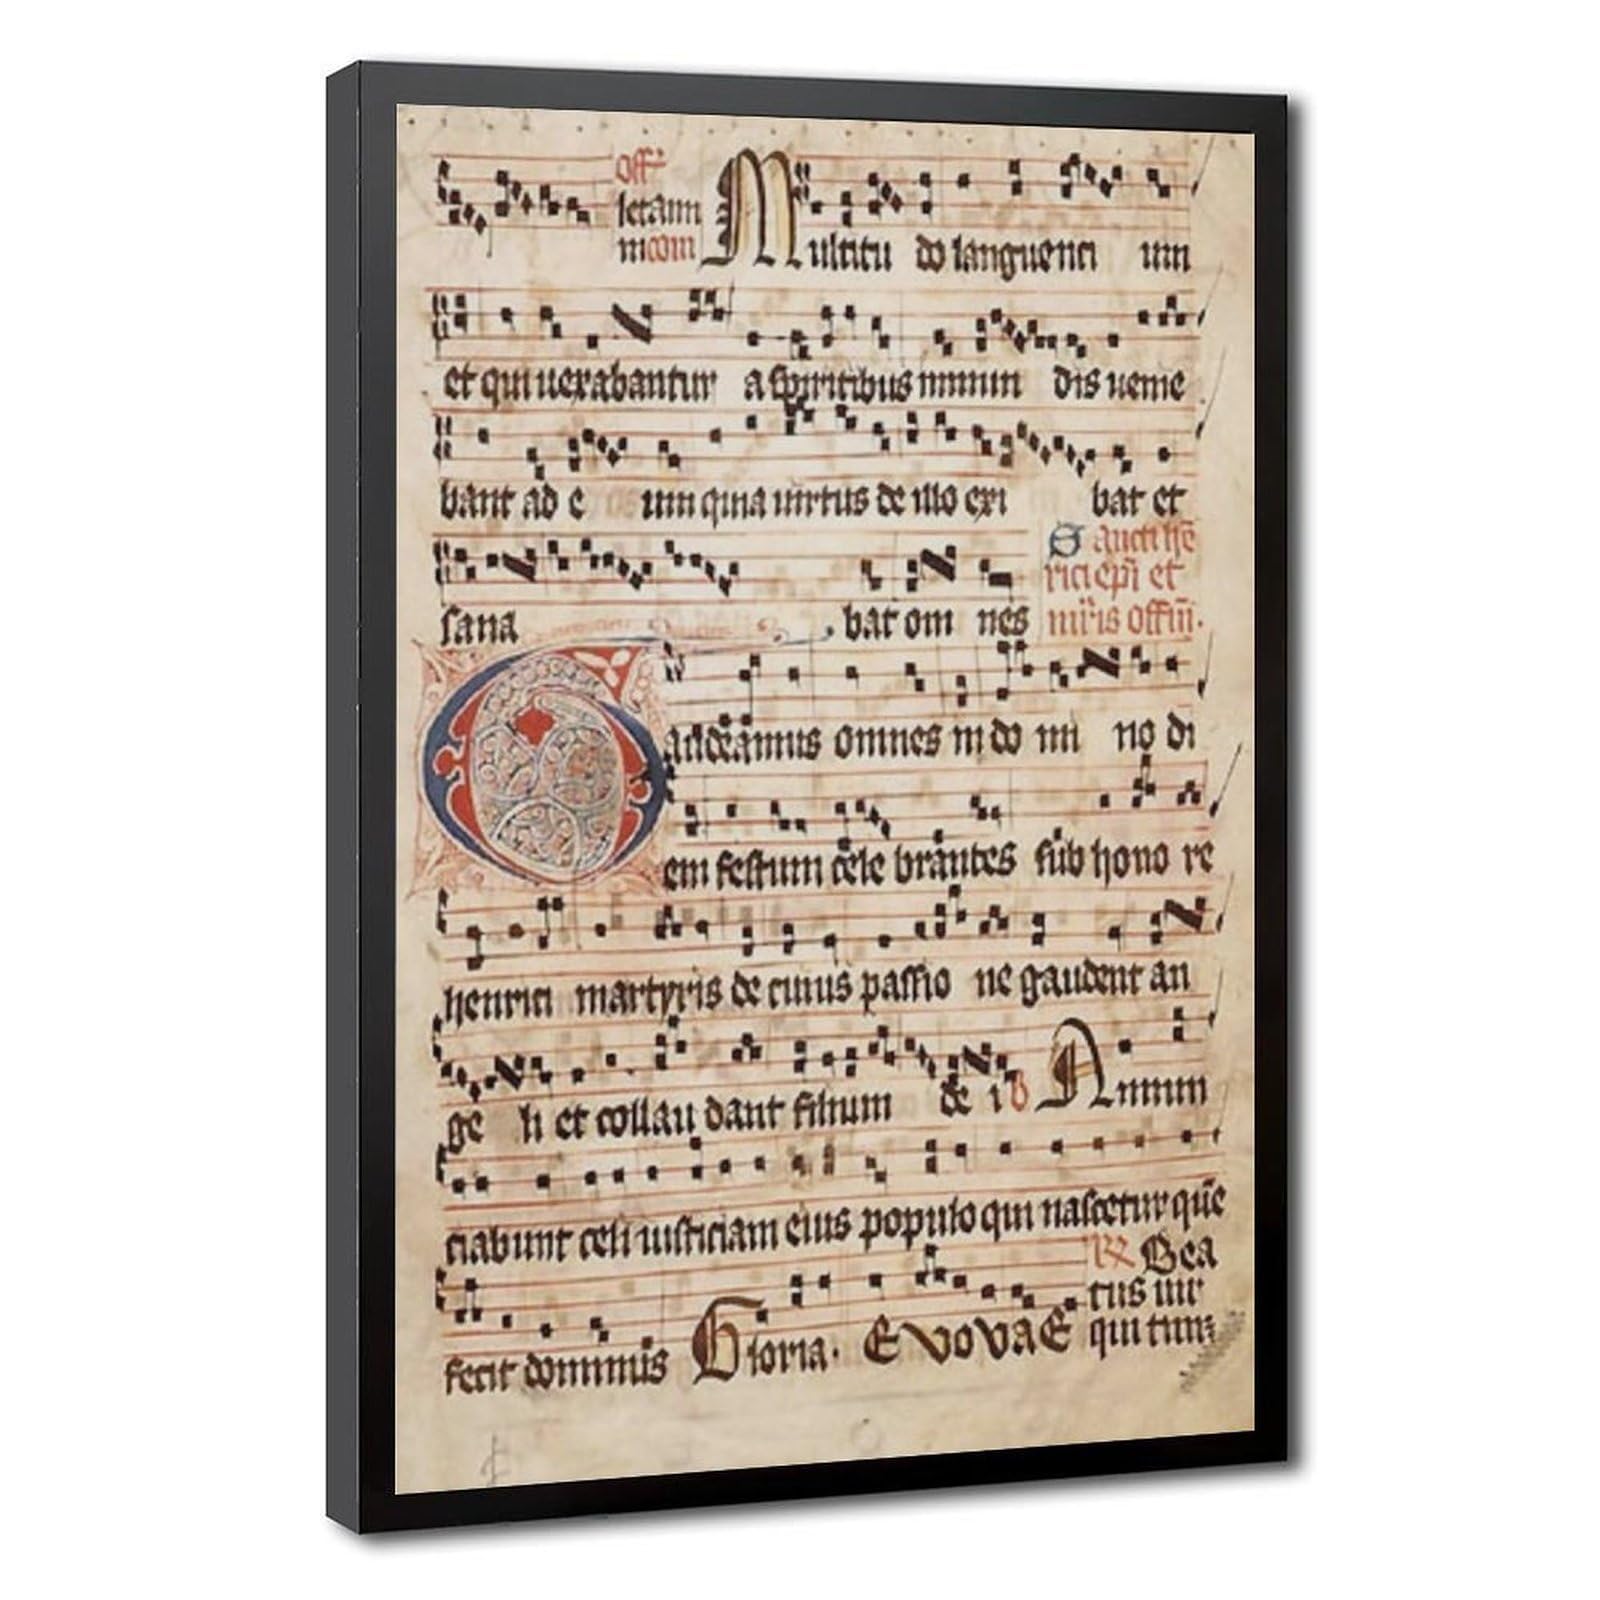 Off̄
letamini com
Multitu do languenti um
et qui uexabantur a spiritibus inmun dis uenie
bant ad e um quia uirtus de illo exi bat et
sana bat om nes
Sancti hērici epī et mr̄is offm̄.
Gaudeamus omnes in do mi no di
em festum cele brantes sub hono re
henrici martyris de cuius passio ne gaudent an
ge li et collau dant filium de i
Annun
ciabunt celi iusticiam eius populo qui nascetur quē
fecit dominus Gloria. EVOVAE
Bea
tus uir
qui tim̄